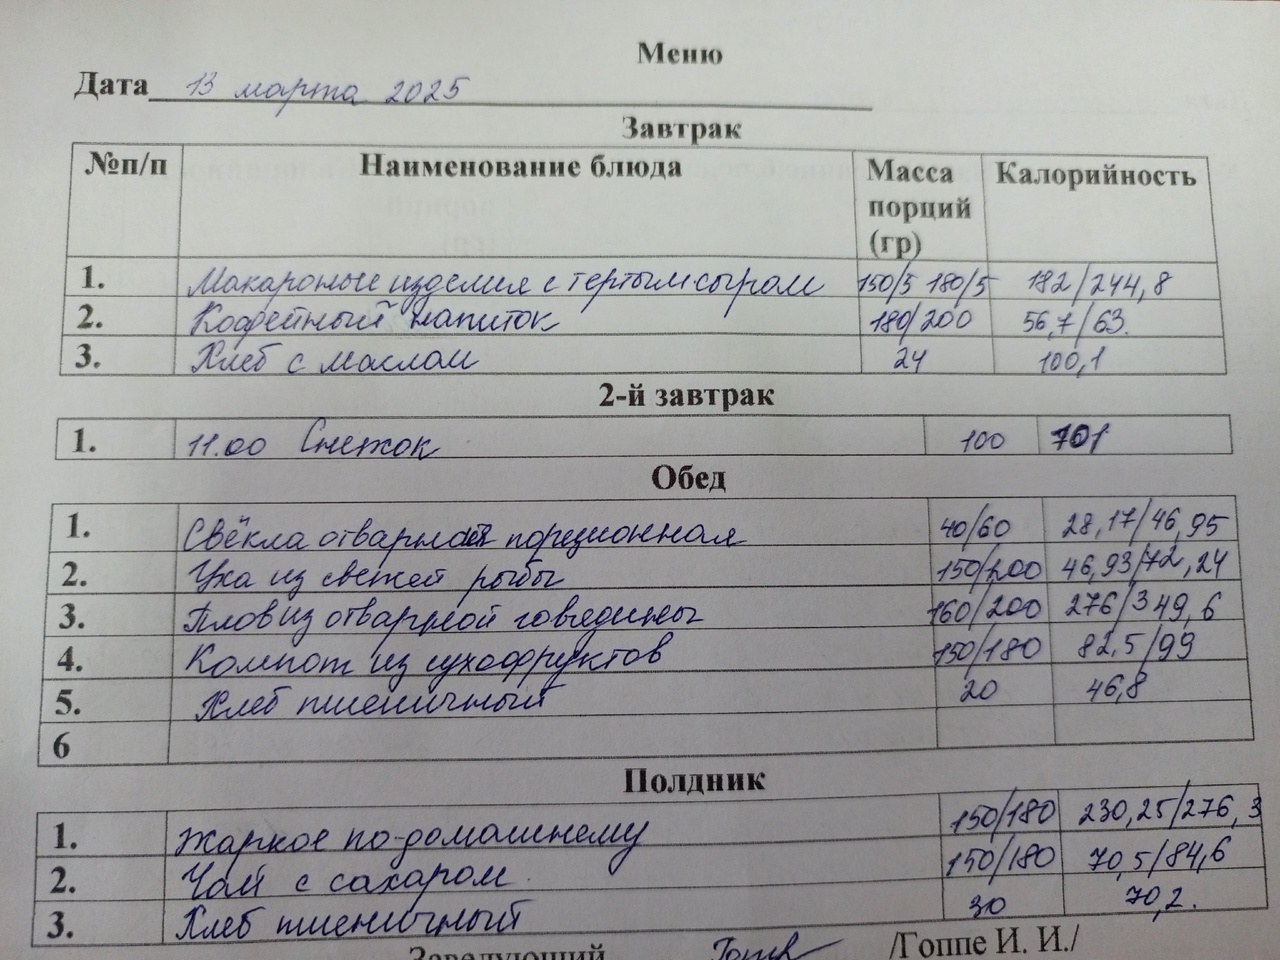 Меню
Дата 13 марта 2025
Завтрак
№п/п Наименование блюда Масса порций (гр) Калорийность
1. Макароные изделия с тертым сыром 150/5 180/5 182/244,8
2. Кофейный напиток 180/200 56,7/63.
3. Хлеб с маслом 24 100,1
2-й завтрак
1. 11.00 Снежок 100
Обед
1. Свёкла отварная порционная 40/60 28,17/46,95
2. Уха из свежей рыбы 150/200 46,93/72,24
3. Плов из отварной говядины 160/200 276/349,6
4. Компот из сухофруктов 150/180 82,5/99
5. Хлеб пшеничный 20 46,8
6
Полдник
1. Жаркое по-домашнему 150/180 230,25/276,3
2. Чай с сахаром 150/180 70,5/84,6
3. Хлеб пшеничный 30 70,2.
Заведующий /Гоппе И. И./